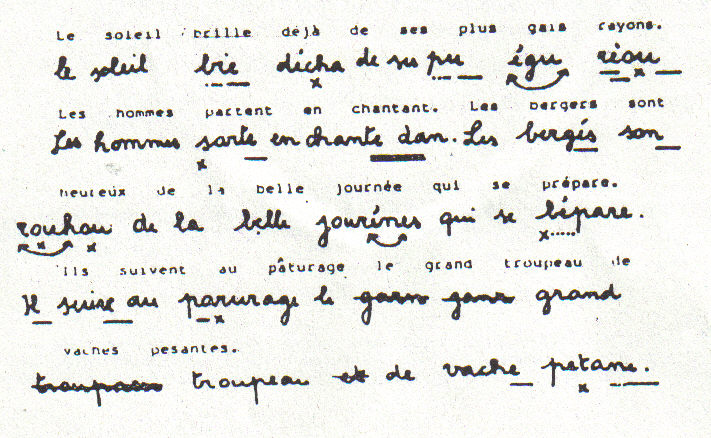 Le soleil brille déjà de ses plus gais rayons.
le soleil brie décha de su pu égu réou
Les hommes partent en chantant. Les bergers sont
Les hommes sarte en chante dan. Les bergés son
heureux de la belle journée qui se prépare.
rouhou de la belle jourénes qui se bépare.
Ils suivent au pâturage le grand troupeau de
Il suire au parurage le garn ganr grand
vaches pesantes.
troupeau et de vache petane.